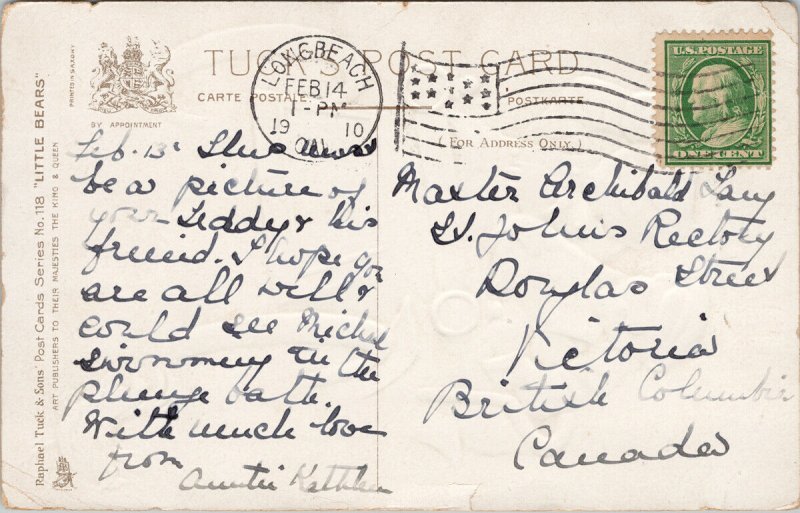 TUCK'S POST CARD
CARTE POSTALE
POSTKARTE
(FOR ADDRESS ONLY.)
PRINTED IN SAXONY
BY APPOINTMENT
Raphael Tuck & Sons' Post Cards Series No. 118 "LITTLE BEARS"
ART PUBLISHERS TO THEIR MAJESTIES THE KING & QUEEN
LONG BEACH
FEB 14
1-PM
19 10
CAL.
U.S. POSTAGE
ONE CENT
Feb. 13. This must
be a picture of
your Teddy & his
friend. I hope you
are all well &
could see Michel
swimming in the
plunge bath.
With much love
from
Auntie Kathleen
Master Archibald
St. John's Rectory
Douglas Street
Victoria
British Columbia
Canada